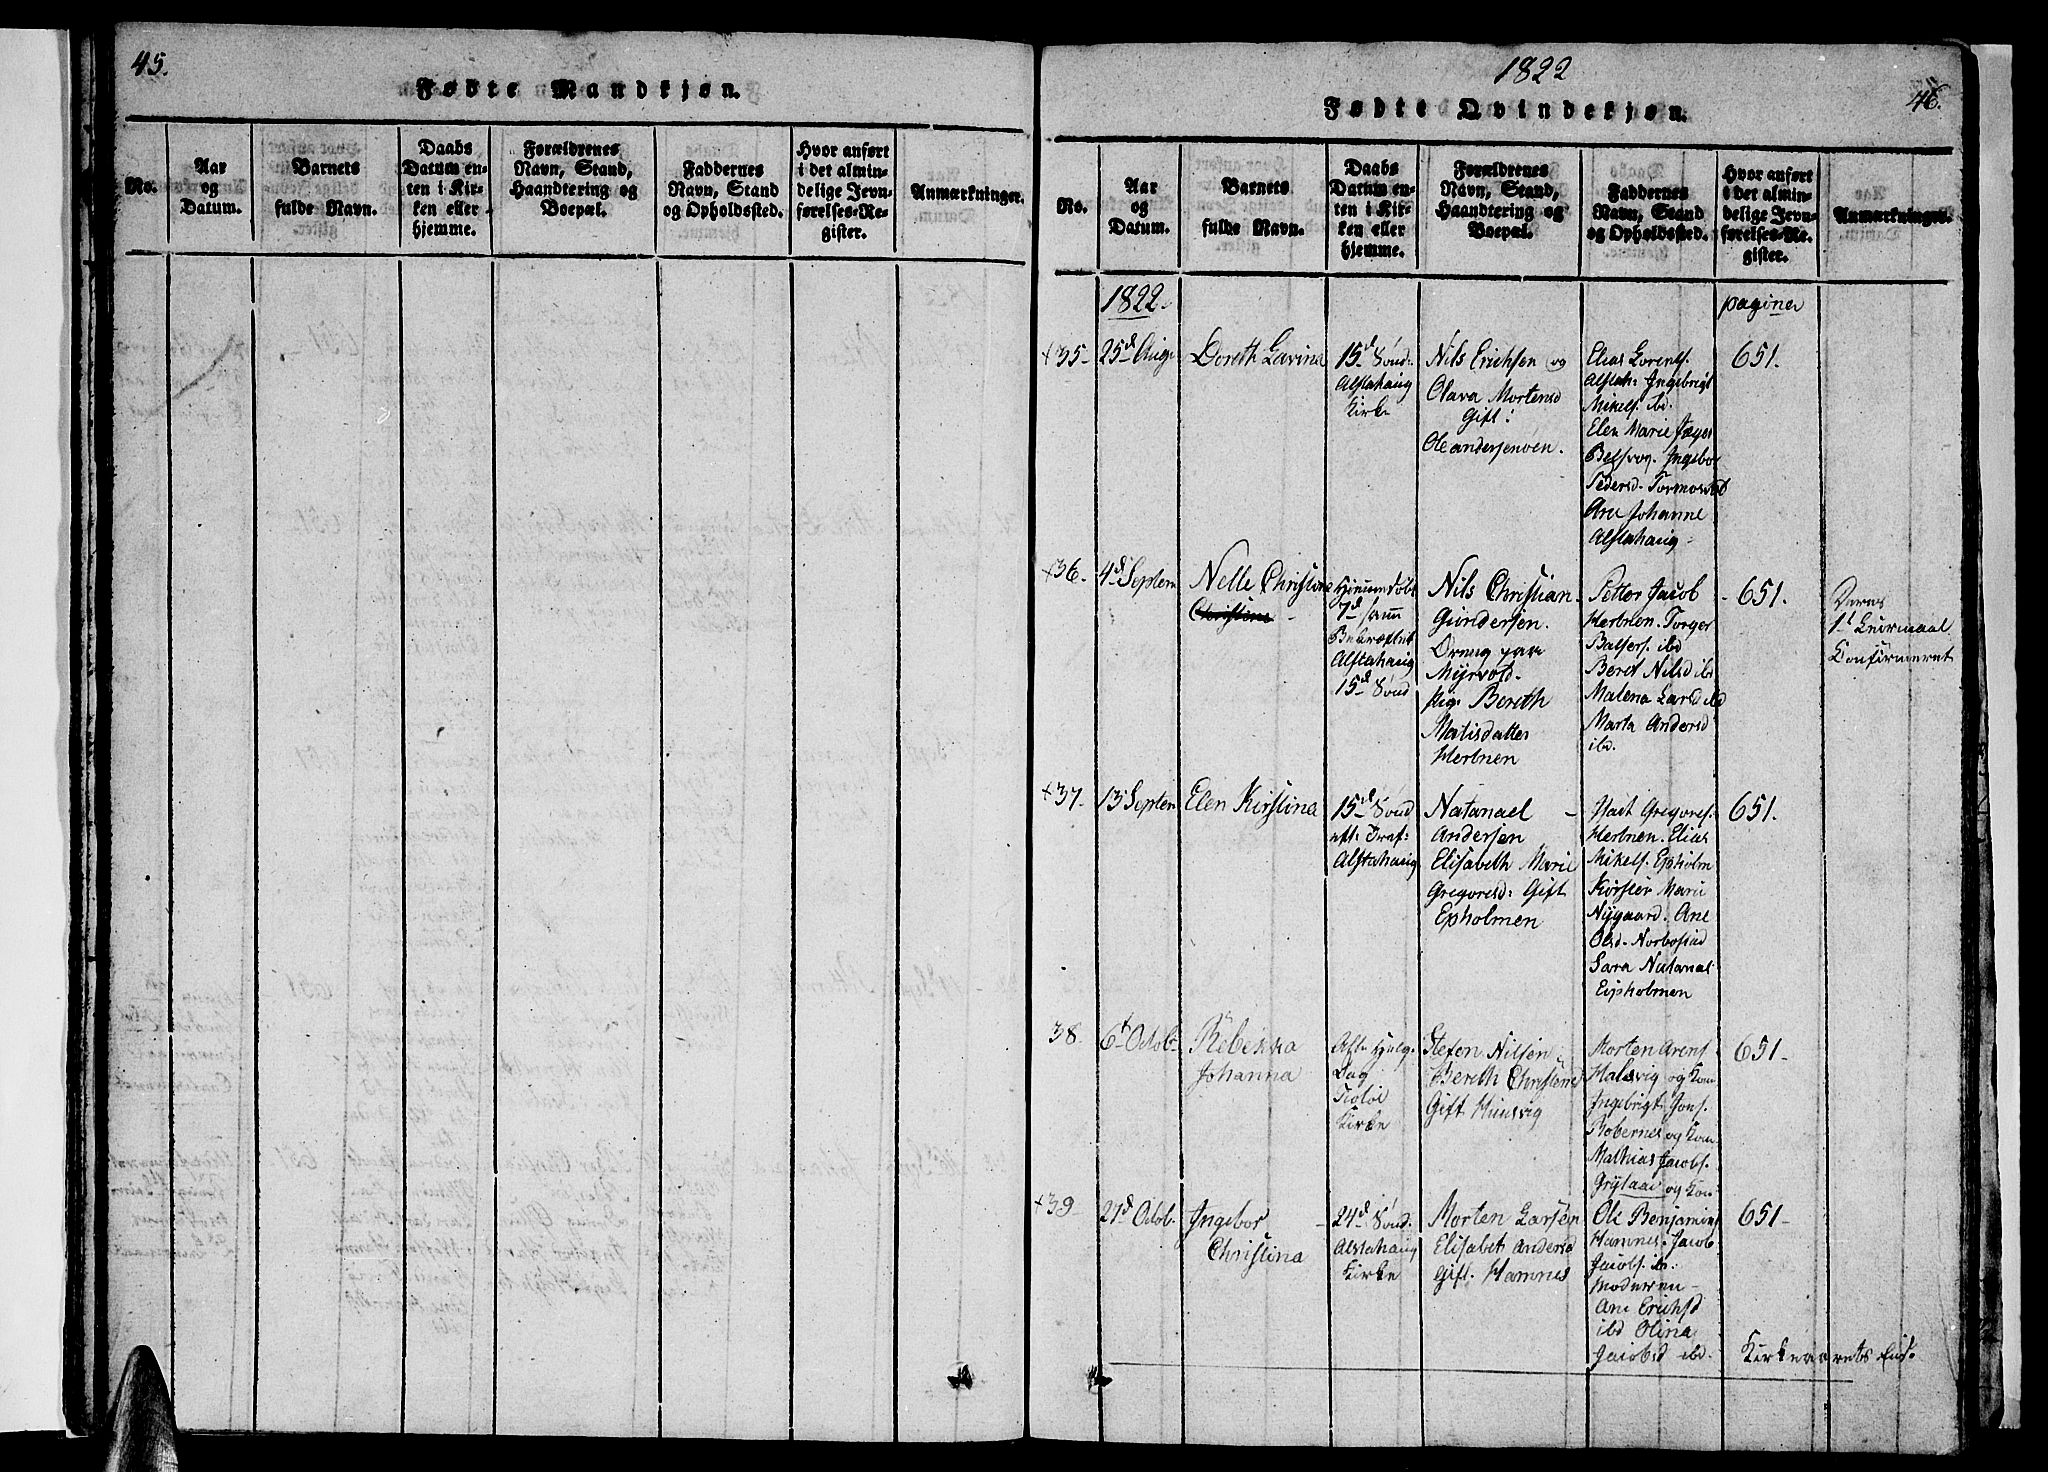 45.
Fødte Mandkjøn.
No.
Aar
og
Datum.
Barnets
fulde Navn.
Daabs
Datum en-
ten i Kir-
ken eller
hjemme.
Forældrenes
Navn, Stand,
Haandtering og
Boepæl.
Faddernes
Navn, Stand
og Opholdssted.
Hvor anført
i det almin-
delige Jevn-
førelses-Re-
gister.
Anmærkninger.
1822
46.
Fødte Qvindekjøn.
No.
Aar
og
Datum.
Barnets
fulde Navn.
Daabs
Datum en-
ten i Kir-
ken eller
hjemme.
Forældrenes
Navn, Stand,
Haandtering og
Boepæl.
Faddernes
Navn, Stand
og Opholdssted.
Hvor anført
i det almin-
delige Jevn-
førelses-Re-
gister.
Anmærkninger.
1822.
pagina
+35.
25d Aug.
Doreth Lavina
15d Sønd.
Alstahaug
Kirke
Nils Erichsen og
Olava Mortensd
Gift:
Oleandersenøen.
Elias Lorents.
Alstah: Ingebrigt
Mikels. ibd.
Elen Marie Jæger
Belsvog. Ingebor
Pedersd. Tormo
Ane Johanne
Alstahaug
651.
+36.
4d Septem
Nelle Christine
Christine
Hjemmedøbt
7d
Bekræftet
Alstahaug
15d Sønd
Nils Christian
Gundersen.
Myrvold.
Pig. Bereth
Matisdatter
Herbnen
Petter Jacob
Herbnen. Torger
Balsers. ibd
Beret Nilsd ibd
Malena Larsd ibd
Marta Andersd
ibd.
651.
1t Leiermaal
Confirmeret
+37.
13 Septem
Elen Kirstina
15d Sønd
eft: Traf:
Alstahaug
Natanael
Andersen
Elisabeth Marie
Gregoresd: Gift
Epholmen
Isach Gregores.
Herbnen. Elias
Mikels. Epholm
Kirster Marie
Nygaard. Ane
Olsd. Norbostad
Sara Natanal
Epholmen
651.
38.
6t Octob.
Rebekka
Johanna
Alle Helg.
Dag
Tiøtøe
Kirke
Stefen Nilsen
Bereth Christensd
Gift Hunsvig
Morten Arens.
Halsvig og Kon
Ingebrigt Jons.
Robernes og Kon
Mathias Jacobs.
Grytaae og Kon
651.
+39
27d Octob.
Ingebor
Christina
24d Sønd.
Alstahaug
Kirke
Morten Larsen
Elisabet Andersd
Gift. Hamnes
Ole Benjamins
Hamnes. Jacob
Jacobs. ib.
Moderen
Ane Erichsd
ibd Olina
Jacobsd ibd.
651.
Kirkeaarets End.